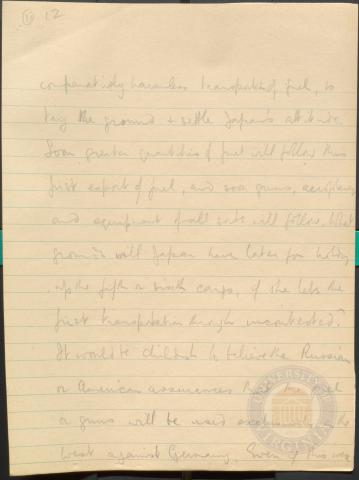 10 12
comparatively harmless transportation of fuel, to
try the ground + settle Japan's attitude.
Soon greater quantities of fuel will follow this
first export of fuel, and soon guns, aeroplanes
and equipment of all sorts will follow. What
grounds will Japan have later for holding
up the fifth or sixth cargo, if she lets the
first transportation through uncontested?
It would be childish to believe the Russian
or American assurances that fuel
or guns will be used exclusively in the
west against Germany. Even if this were
UNIVERSITY
VIRGINIA